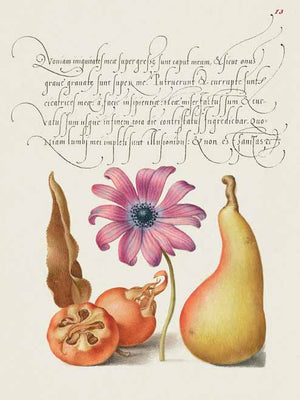 13
Quoniam iniquitates meæ supergressæ sunt caput meum, & sicut onus
graue grauatæ sunt super me. Putruerunt & corruptæ sunt
cicatrices meæ, a facie insipientiæ meæ miser factus sum & cur-
uatus sum usque in finem tota die contristatus ingrediebar. Quo-
niam lumbi mei impleti sunt illusionibus & non est sanitas &c